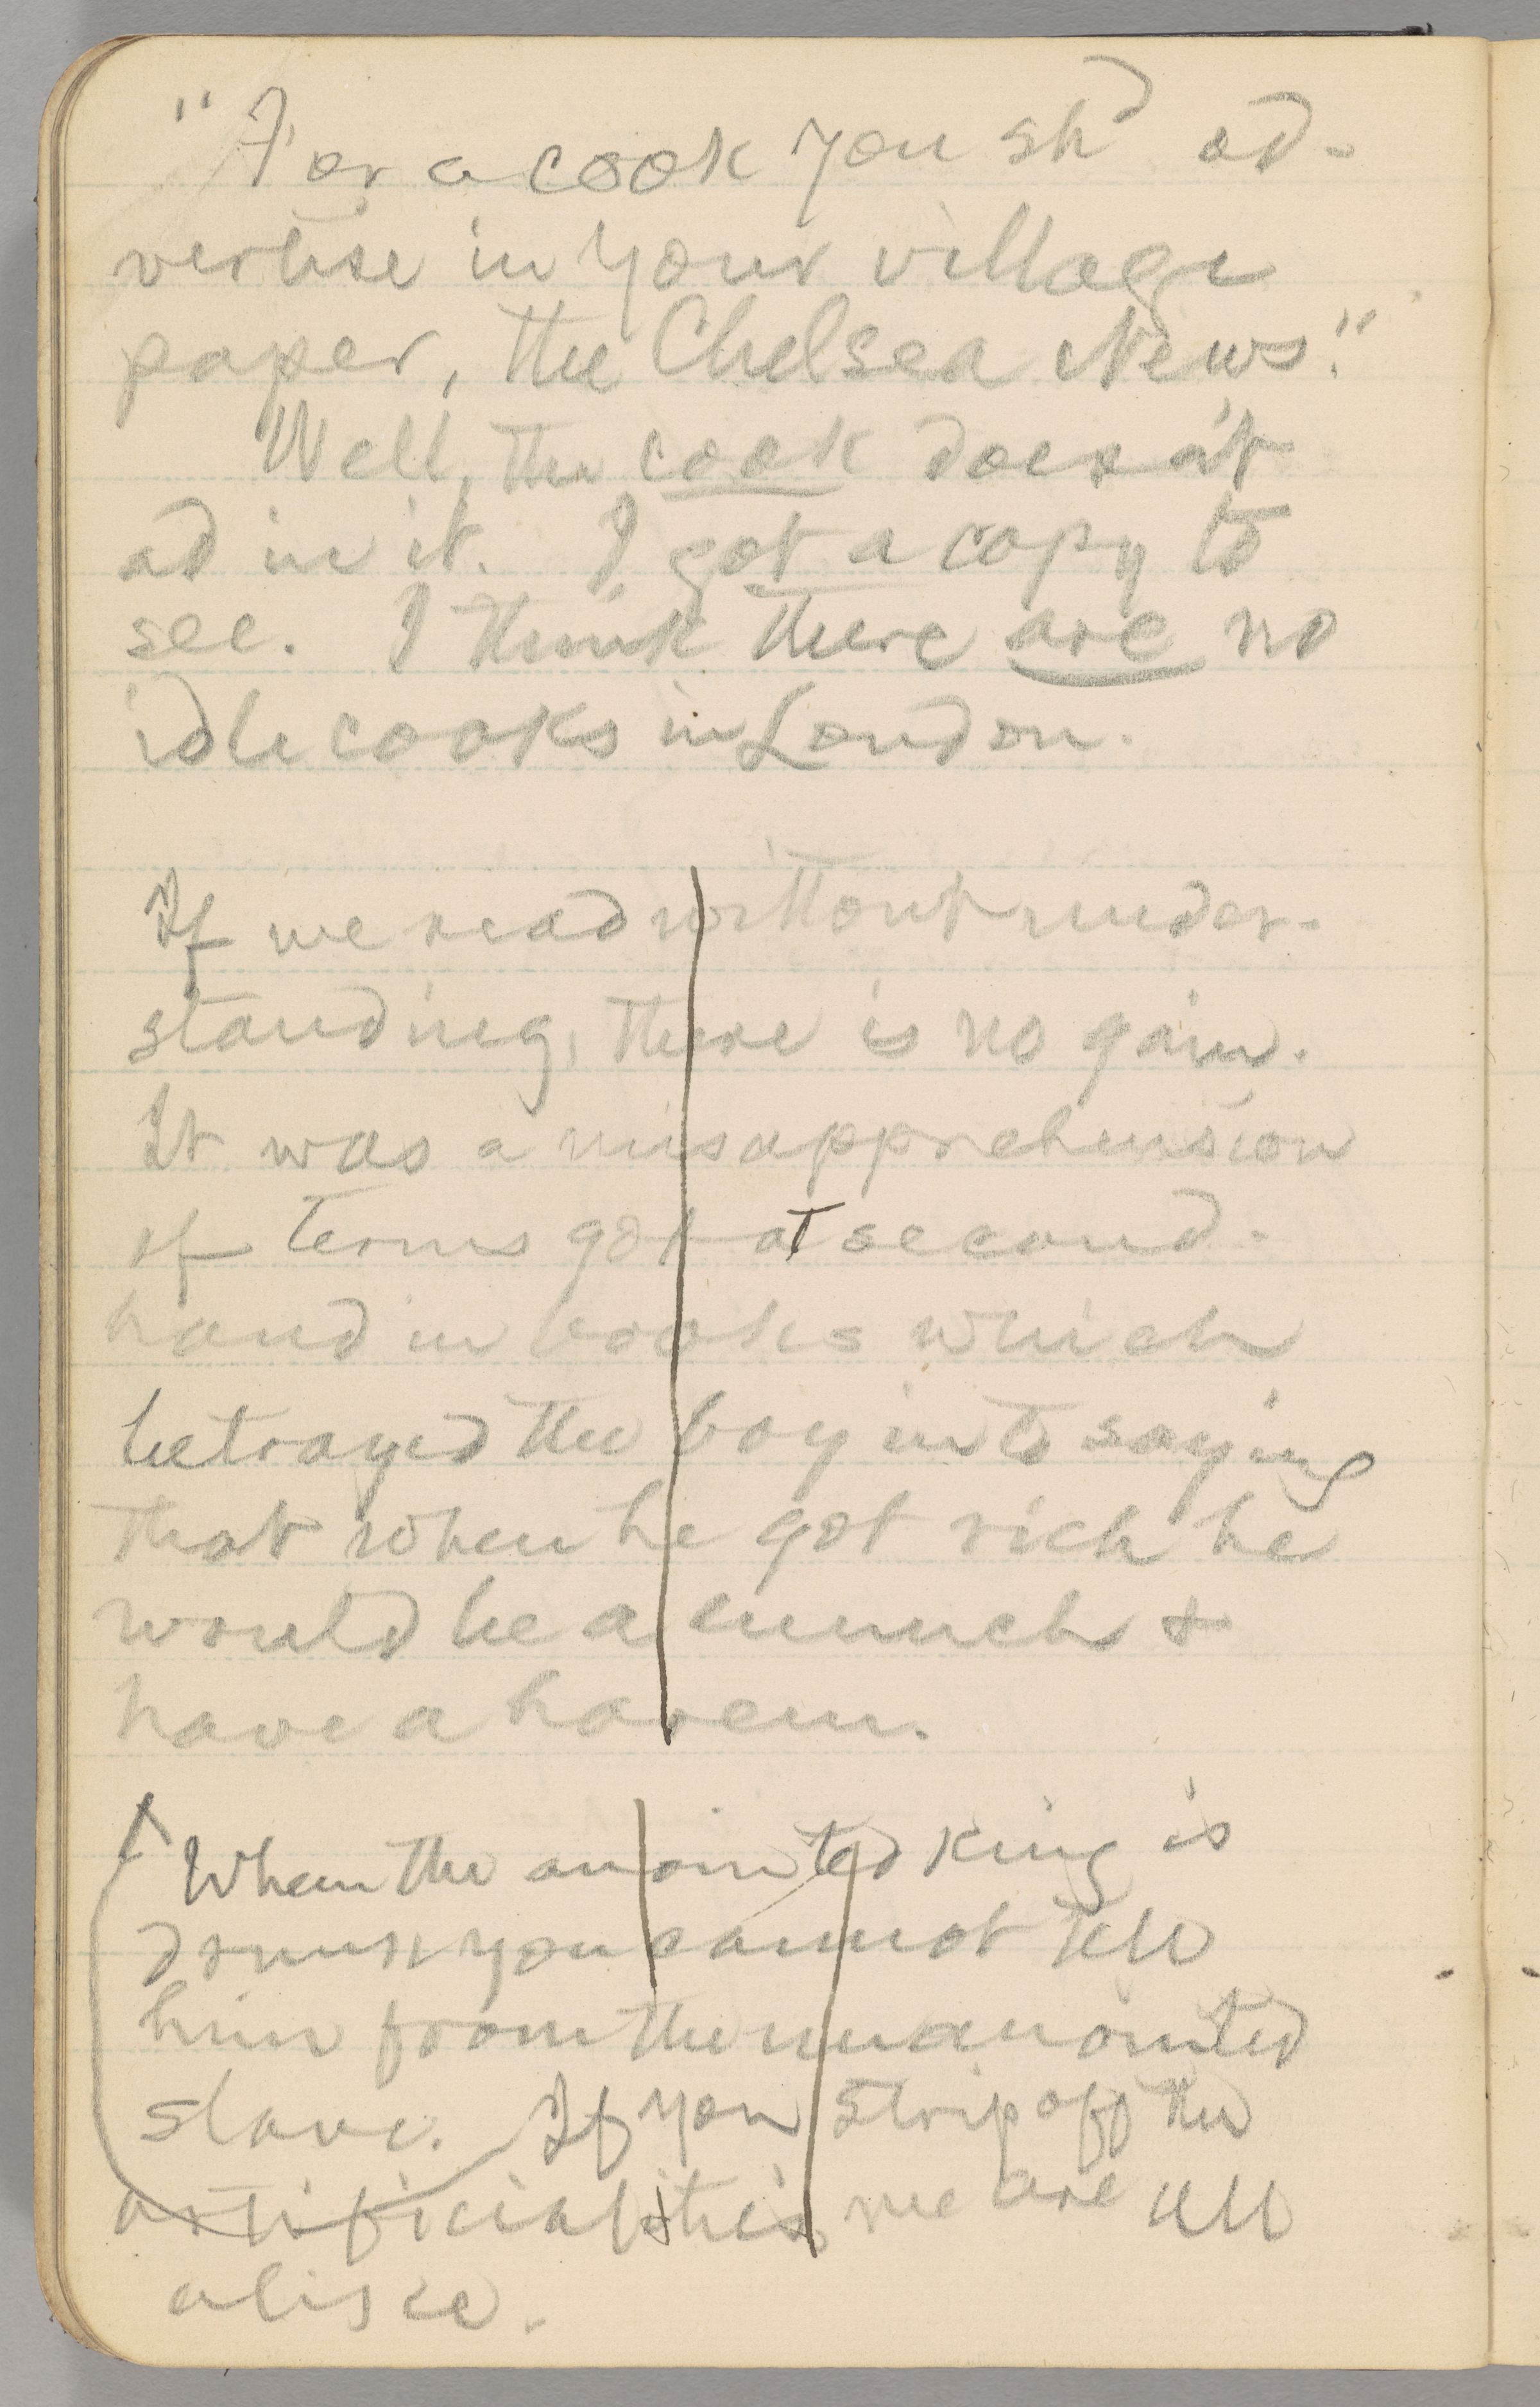 "For a cook you shd ad-
vertise in your village
paper, the Chelsea News."
Well, the cook doesn't
ad in it. I got a copy to
see. I think there are no
idle cooks in London.
If we read without under-
standing, there is no gain.
It was a misapprehension
of terms got at second-
hand in books which
betrayed the boy into saying
that when he got rich he
would be a eunuch &
have a harem.
When the anointed king is
drunk you cannot tell
him from the unanointed
slave. If you strip off the
artificialities, we are all
alike.